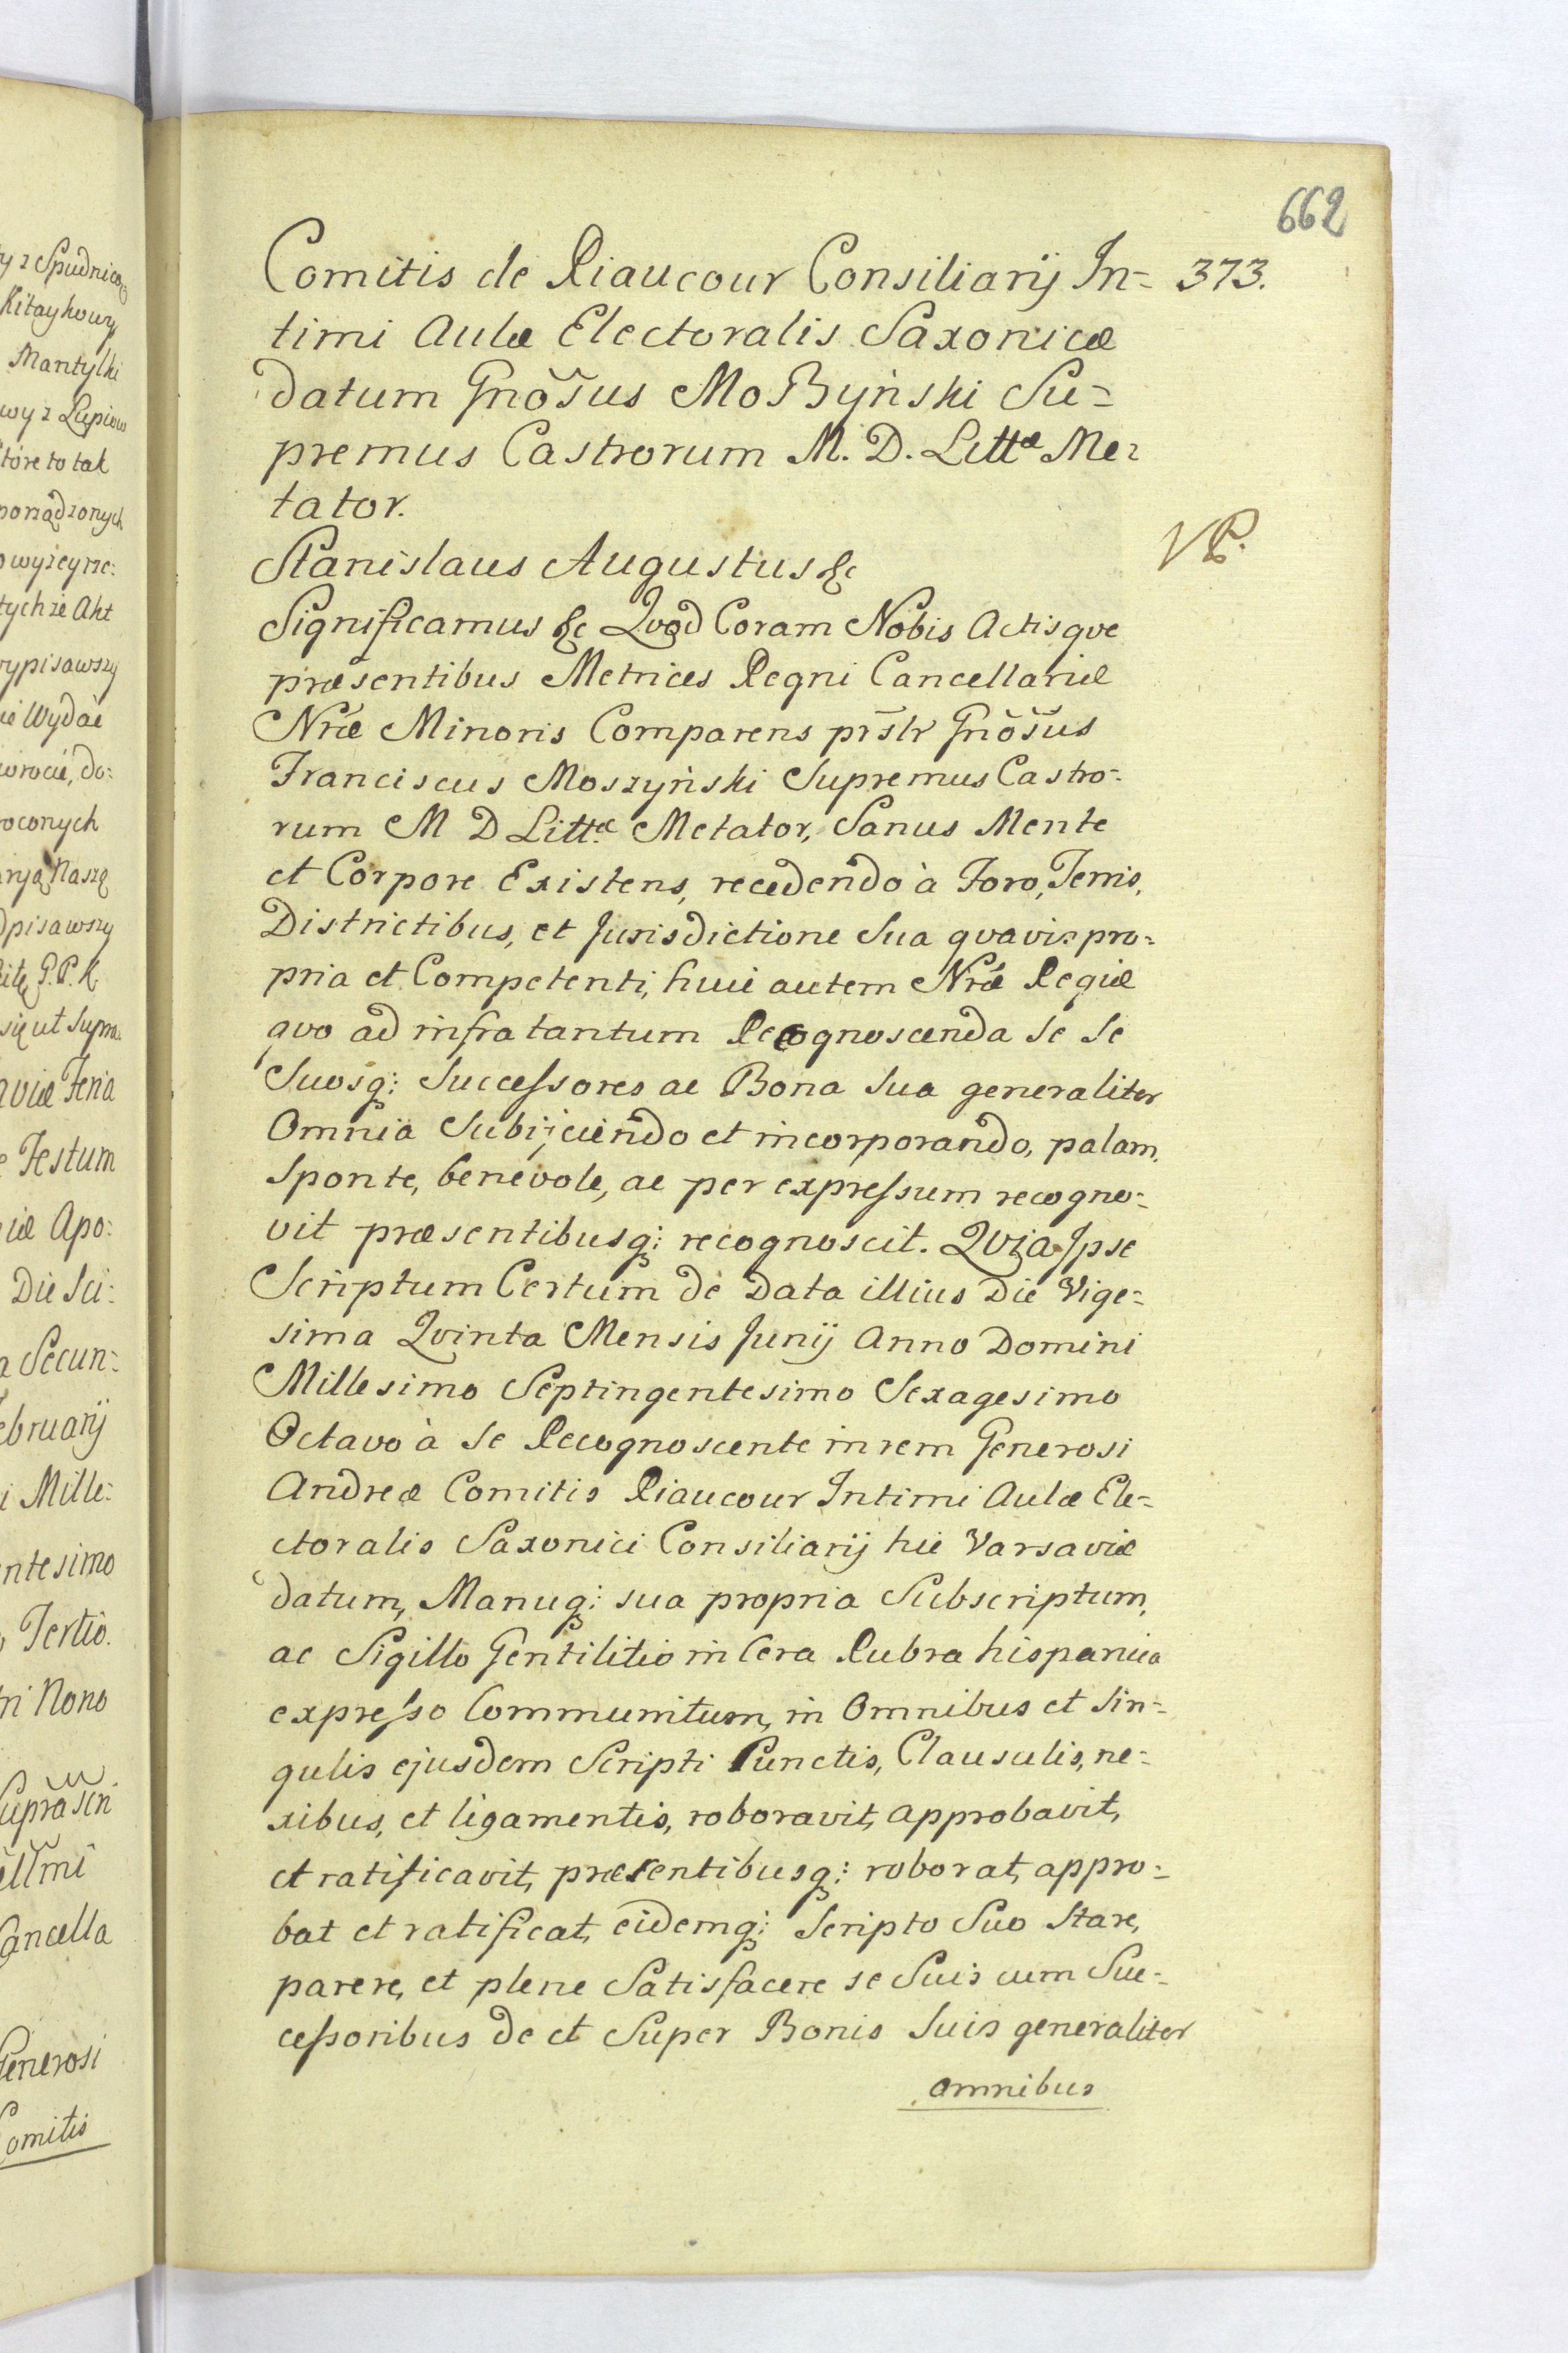 662
Comitis de Riaucour Consiliarij In= 373.
timi Aulæ Electoralis Saxonicæ
datum Gnõsus Moßyński Su=
premus Castrorum M. D. Littæ Me=
tator.
Stanislaus Augustus &c
Significamus &c Qvod Coram Nobis Actisqve
præsentibus Metrices Regni Cancellariæ
Nræ Minoris Comparens prslr Gnõsus
Franciscus Moszyński Supremus Castro=
rum M D Littæ Metator, Sanus Mente
et Corpore Existens, recedendo à Foro, Terris,
Districtibus, et Jurisdictione Sua qvavis pro=
pria et Competenti, huic autem Nræ Regiæ
qvo ad infra tantum Recognoscenda se se
Suosq; Successores ac Bona Sua generaliter
Omnia Subijciendo et incorporando, palam,
Sponte, benevole, ac per expressum recogno=
vit præsentibusq; recognoscit. Qvia Ipse
Scriptum Certum de Data illius Die Vige=
sima Qvinta Mensis Junij Anno Domini
Millesimo Septingentesimo Sexagesimo
Octavo à se Recognoscente in rem Generosi
Andreæ Comitis Riaucour Intimi Aulæ Ele=
ctoralis Saxonici Consiliarij hic Varsaviæ
datum, Manuq; sua propria Subscriptum,
ac Sigillo Gentilitio in Cera Rubra hispanica
expresso Communitum, in Omnibus et Sin=
gulis ejusdem Scripti Punctis, Clausulis, ne=
xibus, et ligamentis, roboravit, approbavit,
et ratificavit, præsentibusq; roborat, appro=
bat et ratificat, eidemq; Scripto Suo Stare,
parere, et plene Satisfacere se Suis cum Suc=
cessoribus de et Super Bonis Suis generaliter
omnibus
Kitaykowy
Mantylki
tore to tak
tychże Akt
Wydać
oconych
G. P. K.
ut Supra
Feria
Festum
Apo:
Die Sci:
Secun:
ebruarij
Mille:
ntesimo
Tertio.
Nono
Cancella
Generosi
Comitis